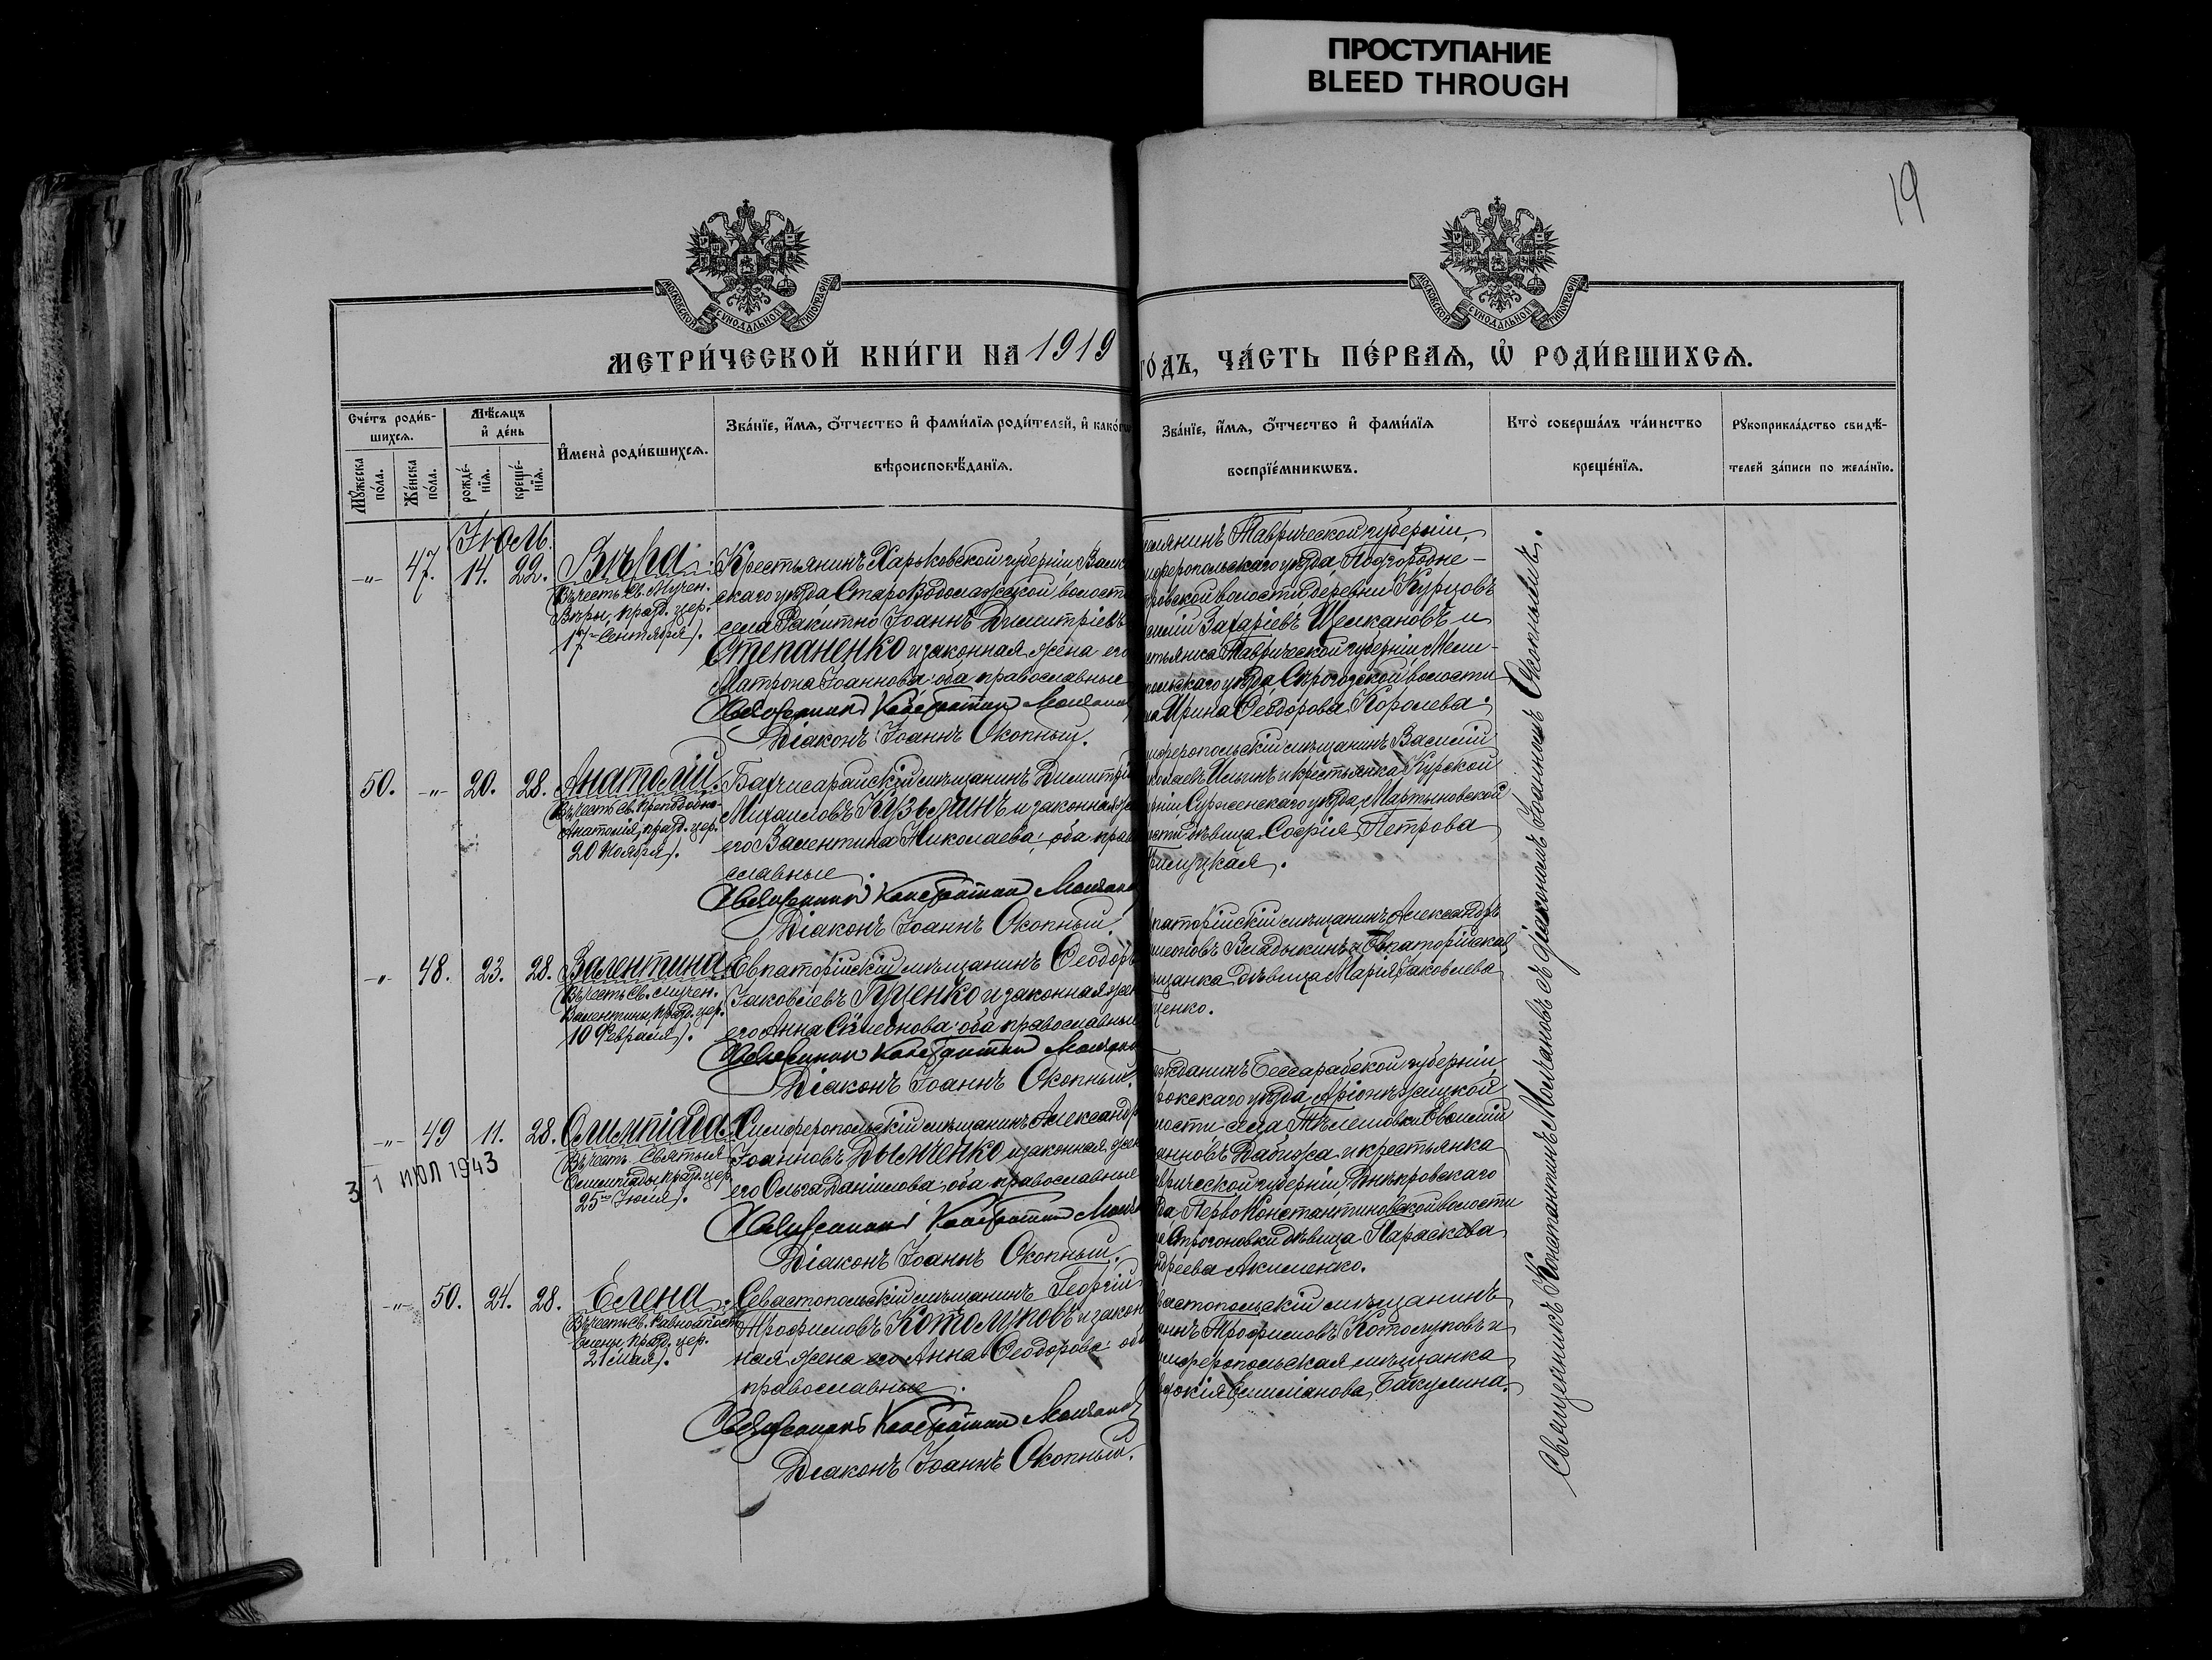 ПРОСТУПАНИЕ
BLEED THROUGH
19
МОСКОВСКОЙ СѴНОДАЛЬНОЙ ТИПОГРАФІИ
МОСКОВСКОЙ СѴНОДАЛЬНОЙ ТИПОГРАФІИ
МЕТРИ́ЧЕСКОЙ КНИ́ГИ НА 1919
ГО́ДЪ, ЧА́СТЬ ПЕ́РВАѦ, Ѡ РОДИ́ВШИХСѦ.
Сче́тъ роди́в-
шихсѧ.
Мѣ́сѧцъ
и҆ де́нь
Мꙋ́жеска
по́ла.
Же́нска
по́ла.
рожде́-
нїѧ.
креще́-
нїѧ.
И҆мена̀ роди́вшихсѧ.
Зва́нїе, и҆́мѧ, ѻ҆́тчество и҆ фами́лїѧ роди́телей, и҆ како́гѡ
вѣроисповѣ́данїѧ.
Зва́нїе, и҆́мѧ, ѻ҆́тчество и҆ фами́лїѧ
воспрїе́мникωвъ.
Кто̀ соверша́лъ та́инство
креще́нїѧ.
Рꙋкоприкла́дство свидѣ́-
телей за́писи по жела́нїю.
Іюль.
-"- 47. 14. 22. Вѣра.
(Въ честь Св. Мучен.
Вѣры, празд. цер.
17го Сентября).
Крестьянинъ Харьковской губерніи Валк
скаго уѣзда, Староводолажской волости
села Ракитно Іоаннъ Димитріевъ
Степаненко и законная жена его
Матрона Іоаннова: оба православные
Священникъ Константинъ Молчанов
Діаконъ Іоаннъ Окопный.
елянинъ Таврической губерніи,
мферопольскаго уѣзда, Подгородне-
ровской волости деревни Курцовъ
силій Захаріевъ Щелкановъ и
стьянка Таврической губерніи Мели-
польскаго уѣзда, Сѣрогозской волости
Ирина Ѳеодорова Королева.
50. -"- 20. 28. Анатолій.
(Въ честь Св. Преподобно-
Анатолія, празд. цер.
20 Ноября).
Бахчисарайскій мѣщанинъ Димитрій
Михаиловъ Кузьминъ и законная же
его Валентина Николаева: оба право
славные.
Священникъ Константинъ Молчанов
Діаконъ Іоаннъ Окопный.
мферопольскій мѣщанинъ Василій
колаевъ Ильинъ и крестьянка Курской
рніи, Суджанскаго уѣзда, Мартыновской
ости дѣвица Софія Петрова
-"- 48. 23. 28. Валентина.
(Въ честь Св. мучен.
Валентины, празд. цер.
10 Февраля).
Евпаторійскій мѣщанинъ Ѳеодоръ
Іаковлевъ Гуценко и законная жен
его Анна Сѷмеонова: оба православные
Священникъ Константинъ Молчано
Діаконъ Іоаннъ Окопный.
паторійскій мѣщанинъ Александръ
меоновъ Владыкинъ и Евпаторійская
щанка дѣвица Марія Іаковлева
ценко.
-"- 49 11. 28. Олимпіада.
(Въ честь Святыя
Олимпіады, празд. цер.
25го Іюля).
31 ИЮЛ 1943
Симферопольскій мѣщанинъ Александр
Іоанновъ Дымченко и законная жен
его Ольга Даніилова: оба православные
Священникъ Константинъ Молча
Діаконъ Іоаннъ Окопный.
ажданинъ Бессарабской губерніи,
рокскаго уѣзда,
ости села
анновъ Дабижа и крестьянка
врической губерніи, Днѣпровскаго
да, Перво Константиновской волости
Строгоновки дѣвица Параскева
дреева Акименко.
-"- 50. 24. 28. Елена.
(Въ честь Св. Равноапост
Елены, празд. цер.
21 Мая).
Севастопольскій мѣщанинъ Георгій
Трофимовъ Котолуповъ и закон
ная жена его Анна Ѳеодорова: оба
православные.
Священникъ Константинъ Молчанов
Діаконъ Іоаннъ Окопный.
вастопольскій мѣщанинъ
аннъ Трофимовъ Котолуповъ и
мферопольская мѣщанка
вдокія Емиліанова Бакулина.
Священникъ Константинъ Молчановъ съ діакономъ Іоанномъ Окопнымъ.